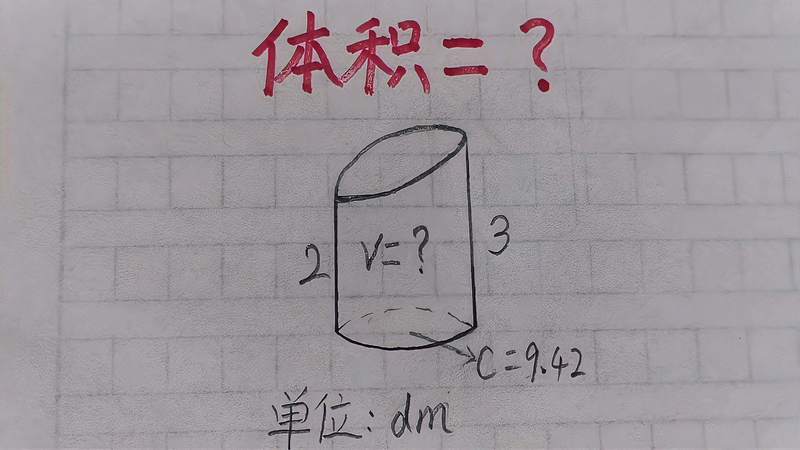 体积=?
2
V=?
3
C=9.42
单位:dm